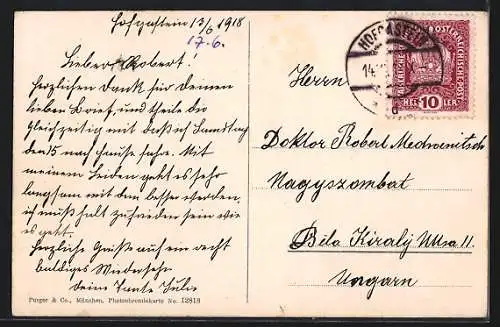 Hofgastein 13/6 1918
17.6.
Lieber Robert.
Herzlichen Dank für Deinen
lieben Brief, und theile dir
gleichzeitig mit daß ich Samstag
den 15 nach Hause fahre. Mit
meinem Leiden geht es sehr
langsam mit dem besser werden,
ich muß halt zufrieden sein wie
es geht.
Herzliche Grüße auf ein recht
baldiges Wiedersehn
deine Tante Julie
Purger & Co., München, Photochromiekarte No. 12818
HOFGASTEIN
14
KAISERLICHE
ÖSTERREICHISCHE POST
HEL 10 LER
Herrn
Doktor Robert
Nagyszombat
Béla Király Utsa 11
Ungarn